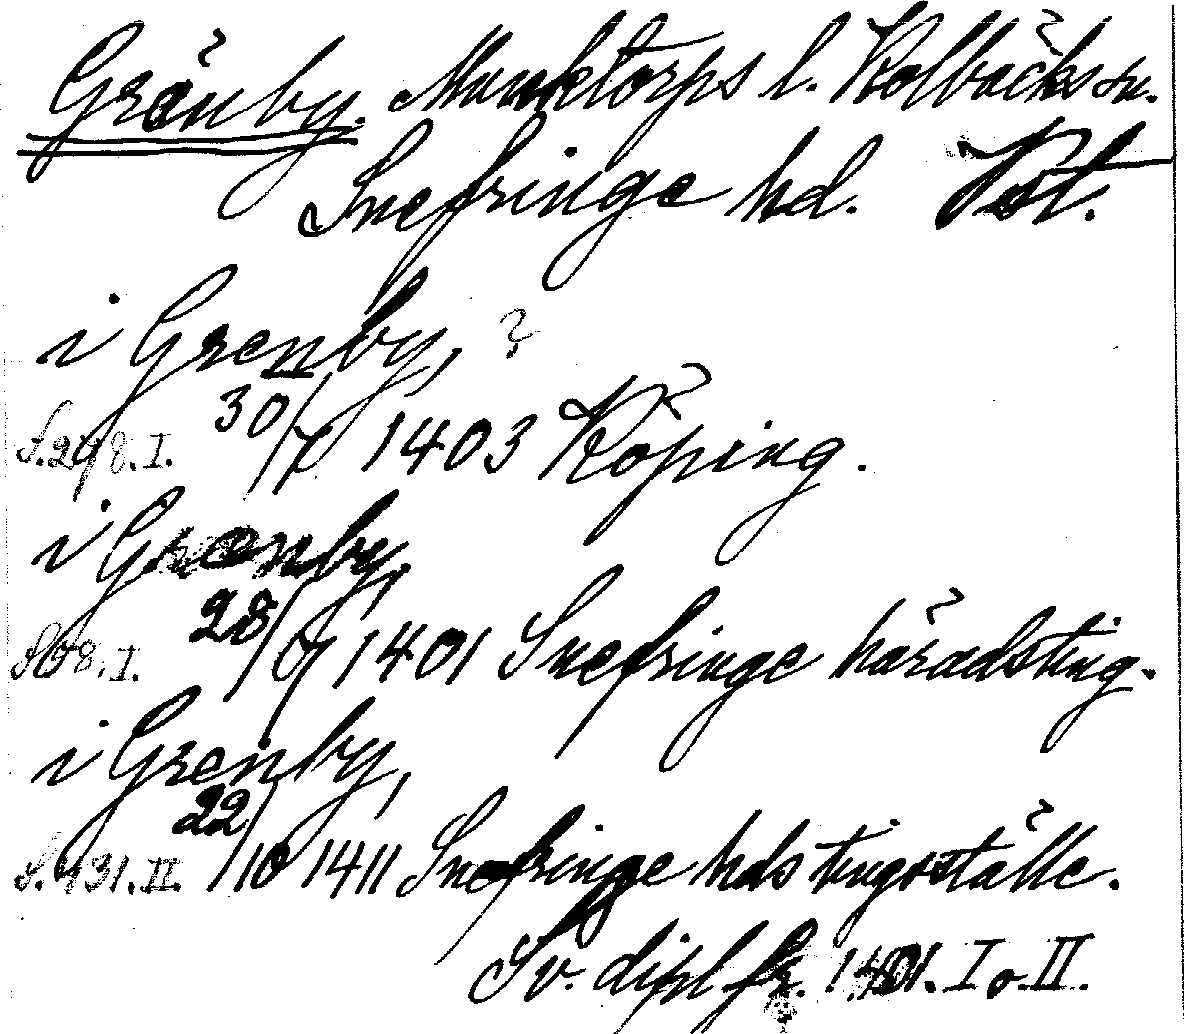 Gränby. Munktorps l. Kolbäcks sn.
Snefringe hd. Vst.
i Grenby, ?
S. 298. I. 30/7 1403 Köping.
i Grænby,
S 68. I. 28/6 1401 Snefringe häradsting.
i Grenby,
S. 431. II. 22/10 1411 Snefringe hds tingsställe.
Sv. dipl fr. 1401. I o. II.